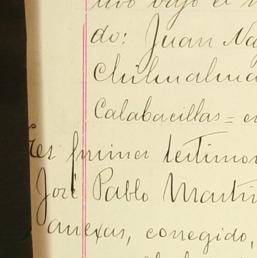 tivo bajo el n
do: Juan Na
Chihuahua
Calabacillas = e
tes primer testimon
José Pablo Martín
anexas, corregido,